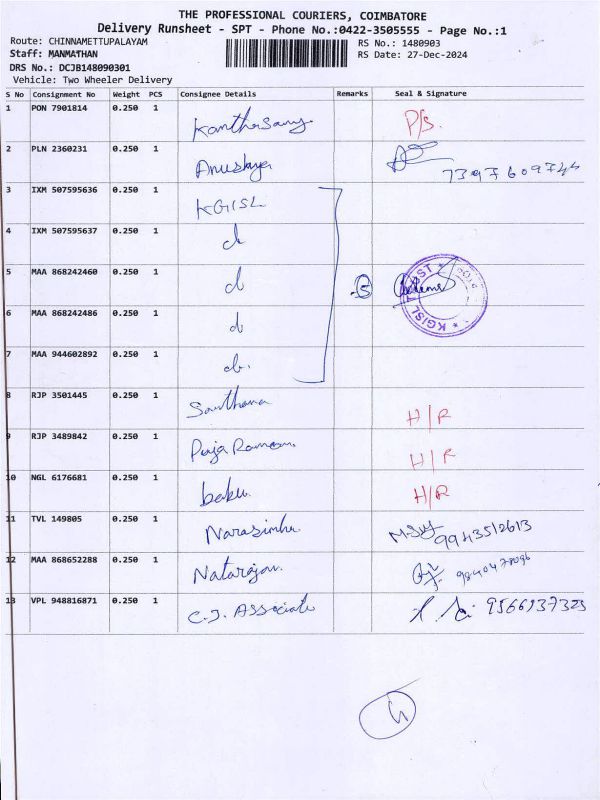 THE PROFESSIONAL COURIERS, COIMBATORE
Delivery Runsheet - SPT - Phone No.:0422-3505555 - Page No.:1
Route: CHINNAMETTUPALAYAM
RS No.: 1480903
Staff: MANMATHAN
RS Date: 27-Dec-2024
DRS No.: DCJB148090301
Vehicle: Two Wheeler Delivery
S No Consignment No Weight PCS Consignee Details Remarks Seal & Signature
1 PON 7901814 0.250 1 P/S.
2 PLN 2360231 0.250 1 Anushya
3 IXM 507595636 0.250 1 KGISL
4 IXM 507595637 0.250 1
5 MAA 868242460 0.250 1
6 MAA 868242486 0.250 1
KGISL TRUST
7 MAA 944602892 0.250 1
8 RJP 3501445 0.250 1 Santhana H/R
9 RJP 3489842 0.250 1 H/R
10 NGL 6176681 0.250 1 H/R
11 TVL 149805 0.250 1 Narasimhu 9943512613
12 MAA 868652288 0.250 1 Natarajan. 9840478096
13 VPL 948816871 0.250 1 C.J. Associate 9566937325